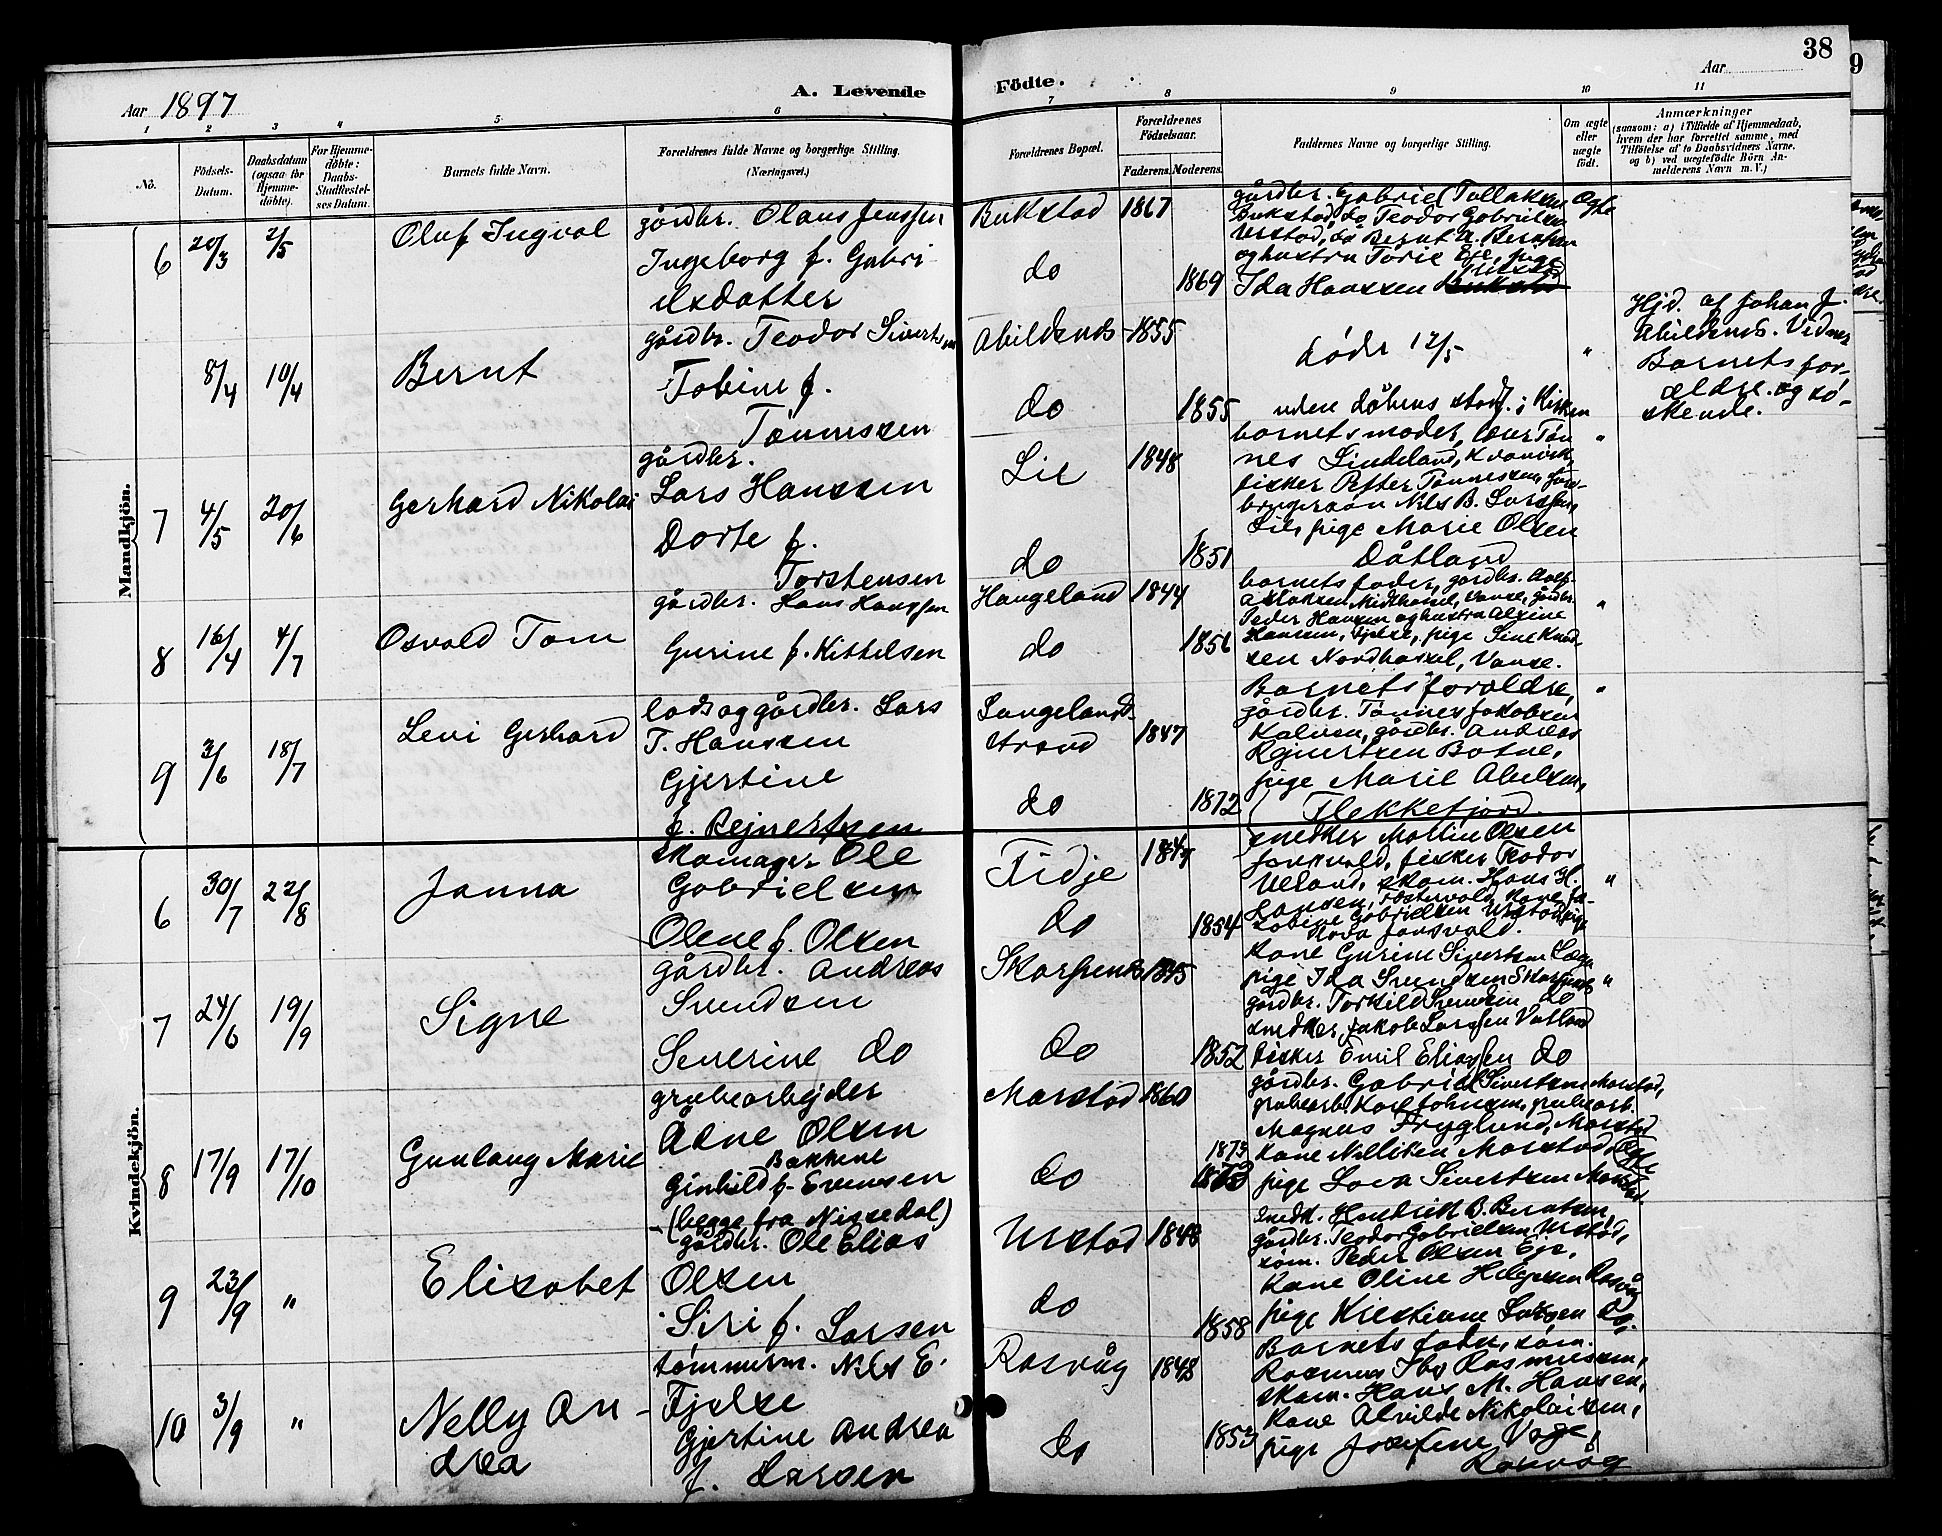 38
Aar 1897
A. Levende
Födte.
Aar
1 2 3 4 5 6 7 8 9 10 11
No.
Födsels-Datum.
Daabsdatum (ogsaa for Hjemme-döbte).
For Hjemme-döbte: Daabs-Stadfæstel-ses Datum.
Barnets fulde Navn.
Forældrenes fulde Navne og borgerlige Stilling.
(Næringsvei.)
Forældrenes Bopæl.
Forældrenes Födselsaar.
Faderens. Moderens.
Faddernes Navne og borgerlige Stilling.
Om ægte eller uægte födt.
Anmærkninger
(saasom: a) i Tilfælde af Hjemmedaab,
hvem der har forrettet samme, med
Tilföielse af to Daabsvidners Navne,
og b) ved uægtefödte Börn An-
melderens Navn m. V.)
Mandkjön.
6 20/3 2/5 Oluf Ingval
gårdbr. Olaus Jenssen
Ingeborg f. Gabri-
elsdatter
Bukstad 1867
do 1869
gårdbr. Gabriel Tollaksen
Bukstad, do Teodor Gabrielsen
Urstad, do Bernt A. Berntsen
og hustru Torie Eje, pige
Ida Hanssen Urstad
Ægte
8/4 10/4 Bernt
gårdbr. Teodor Sivertsen
Tobine f.
Tønnessen
Abildsnes 1855
do 1855
døde 12/5
uden dåbens stadf. i Kirken
"
Hjd. af Johan J.
Abildsnes. Vidner
Barnets for-
ældre og sø-
skende.
7 4/5 20/6 Gerhard Nikolai
gårdbr.
Lars Hanssen
Dorte f.
Torstensen
Lie 1848
do 1851
barnets moder, lærer Tøn-
nes Lindeland, Kvanvik,
fisker Petter Tønnessen, gård-
brugersøn Nils B. Larssen,
Lie, pige Marie Olsen
Dåtland
"
8 16/4 4/7 Osvald Tom
gårdbr. Hans Hanssen
Gurine f. Kittelsen
Haugeland 1844
do 1856
barnets fader, gårdbr. Adolf
Aslaksen Midthassel, Vanse, gårdbr.
Peder Hansen og hustru Alxine
Hanssen, Fjelse, pige Sine Knud-
sen Nordhassel, Vanse.
"
9 3/6 18/7 Levi Gerhard
lods og gårdbr. Lars
T. Hanssen
Gjertine
f. Rejnertsen
Langelands-
strand 1847
do 1872
Barnets forældre,
gårdbr. Tønnes Jakobsen
Kalven, gårdbr. Andreas
Rejnertsen Botne,
pige Marie Abelsen,
Flekkefjord.
"
Kvindekjön.
6 30/7 22/8 Janna
skomager Ole
Gabrielsen
Olene f. Olsen
Fidje 1847
do 1854
snedker Mattin Olsen
Jonsvald, fisker Teodor
Ueland, skom. Hans H.
"
7 24/6 19/9 Signe
gårdbr. Andreas
Svendsen
Severine do
Skarpenes 1845
do 1852
Kone Gurine Sivertsen
pige Ida Svendsen Skarpnes
gårdbr. Torkild Svendsen do
snedker Jakob Larssen Vatland
fisker Emil Eliassen do
"
8 17/9 17/10 Gunlaug Marie
grubearbejder
Ådne Olsen
Bakkene
Ginhild f. Evensen
(begge fra Nissedal)
Marstad 1860
do 1873
gårdbr. Gabriel Sivertsen Marstad,
grubearb. Karl Johnsen, grubearb.
Magnus Fryglund, Marstad
Kone Nelliken Marstad,
pige Lova Sivertsen Marstad.
9 23/9 " Elisabet
gårdbr. Ole Elias
Olsen
Siri f. Larsen
Urstad 1848
do 1858
Snedk. Hendrik B. Berntsen,
gårdbr. Teodor Gabrielsen Urstad,
søm. Peder Olsen Eje,
Kone Oline Helgesen Rasvåg
pige Kristiane Larsen do.
10 3/9 " Nelly An-
drea
tømmerm. Nils E.
Fjelse
Gjertine Andrea
f. Larsen
Rasvåg 1848
do 1853
Barnets fader, søm.
Rasmus Ibs Rasmussen,
skom. Hans M. Hansen,
Kone Alvilde Nikolaisen,
pige Josefine Vage,
Rasvåg